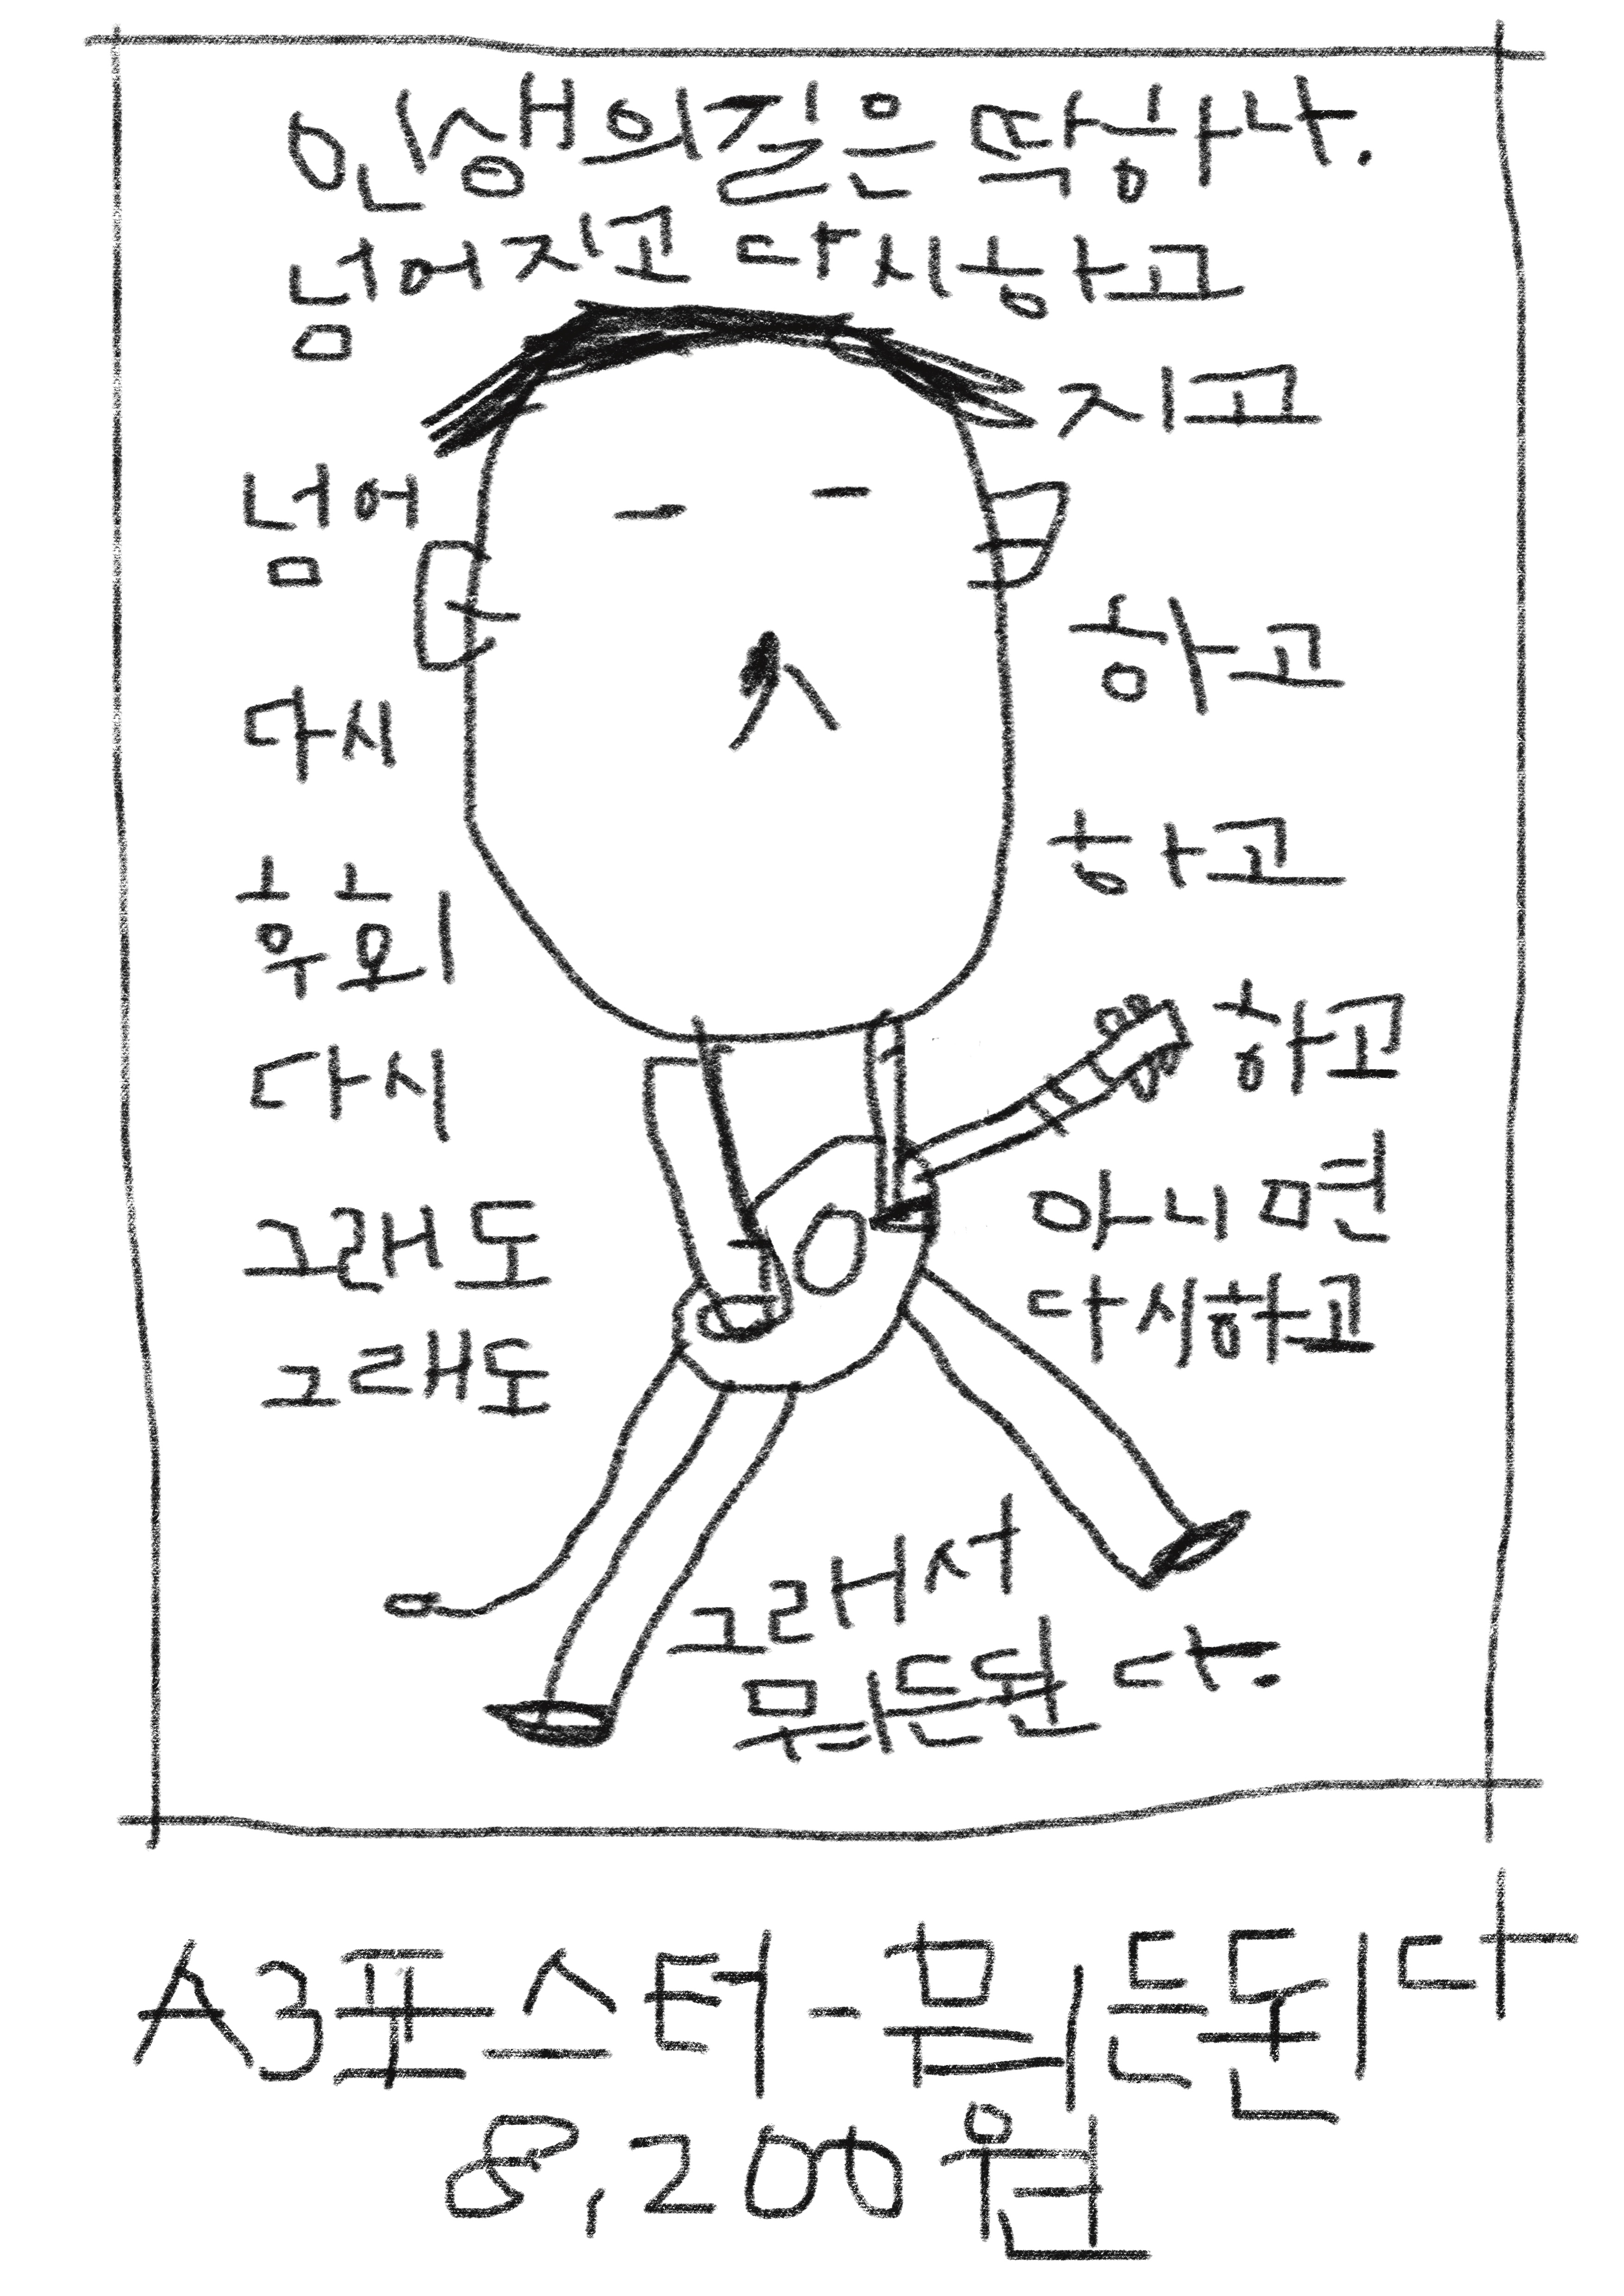 인생의길은 딱하나.
넘어지고 다시하고
넘어 지고
다시 하고
후회 하고
다시 하고
그래도 아니면
그래도 다시하고
그래서
뭐든된다.
A3포스터-뭐든된다
8,200원